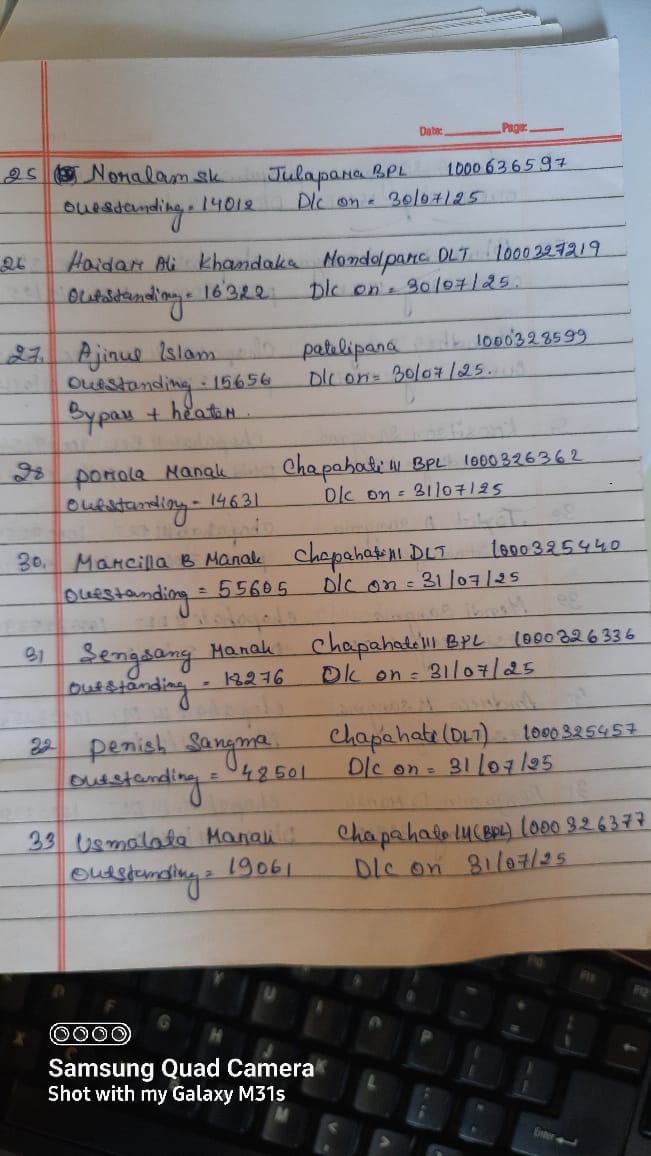 Date: Page:
25 Noralam sk Julapara BPL 1000636597
outstanding = 14012 D/c on = 30/07/25
26 Haidar Ali Khandaka Mondolpara DLT 1000327219
outstanding = 16322 D/c on = 30/07/25.
27. Ajinul Islam patelipara 1000328599
outstanding - 15656 D/c on = 30/07/25.
Bypass + heater.
28 porola Marak Chapahati III BPL 1000326362
outstanding - 14631 D/c on = 31/07/25
30. Marcilla B Marak Chapahati III DLT 1000325440
outstanding = 55605 D/c on = 31/07/25
31 Sengsang Marak Chapahati III BPL 1000326336
outstanding - 18276 D/c on = 31/07/25
32 penish Sangma Chapahati (DLT) 1000325457
outstanding = 48501 D/c on = 31/07/25
33 Usmalata Marak Chapahati (BPL) 1000326377
outstanding = 19061 D/c on 31/07/25
Samsung Quad Camera
Shot with my Galaxy M31s